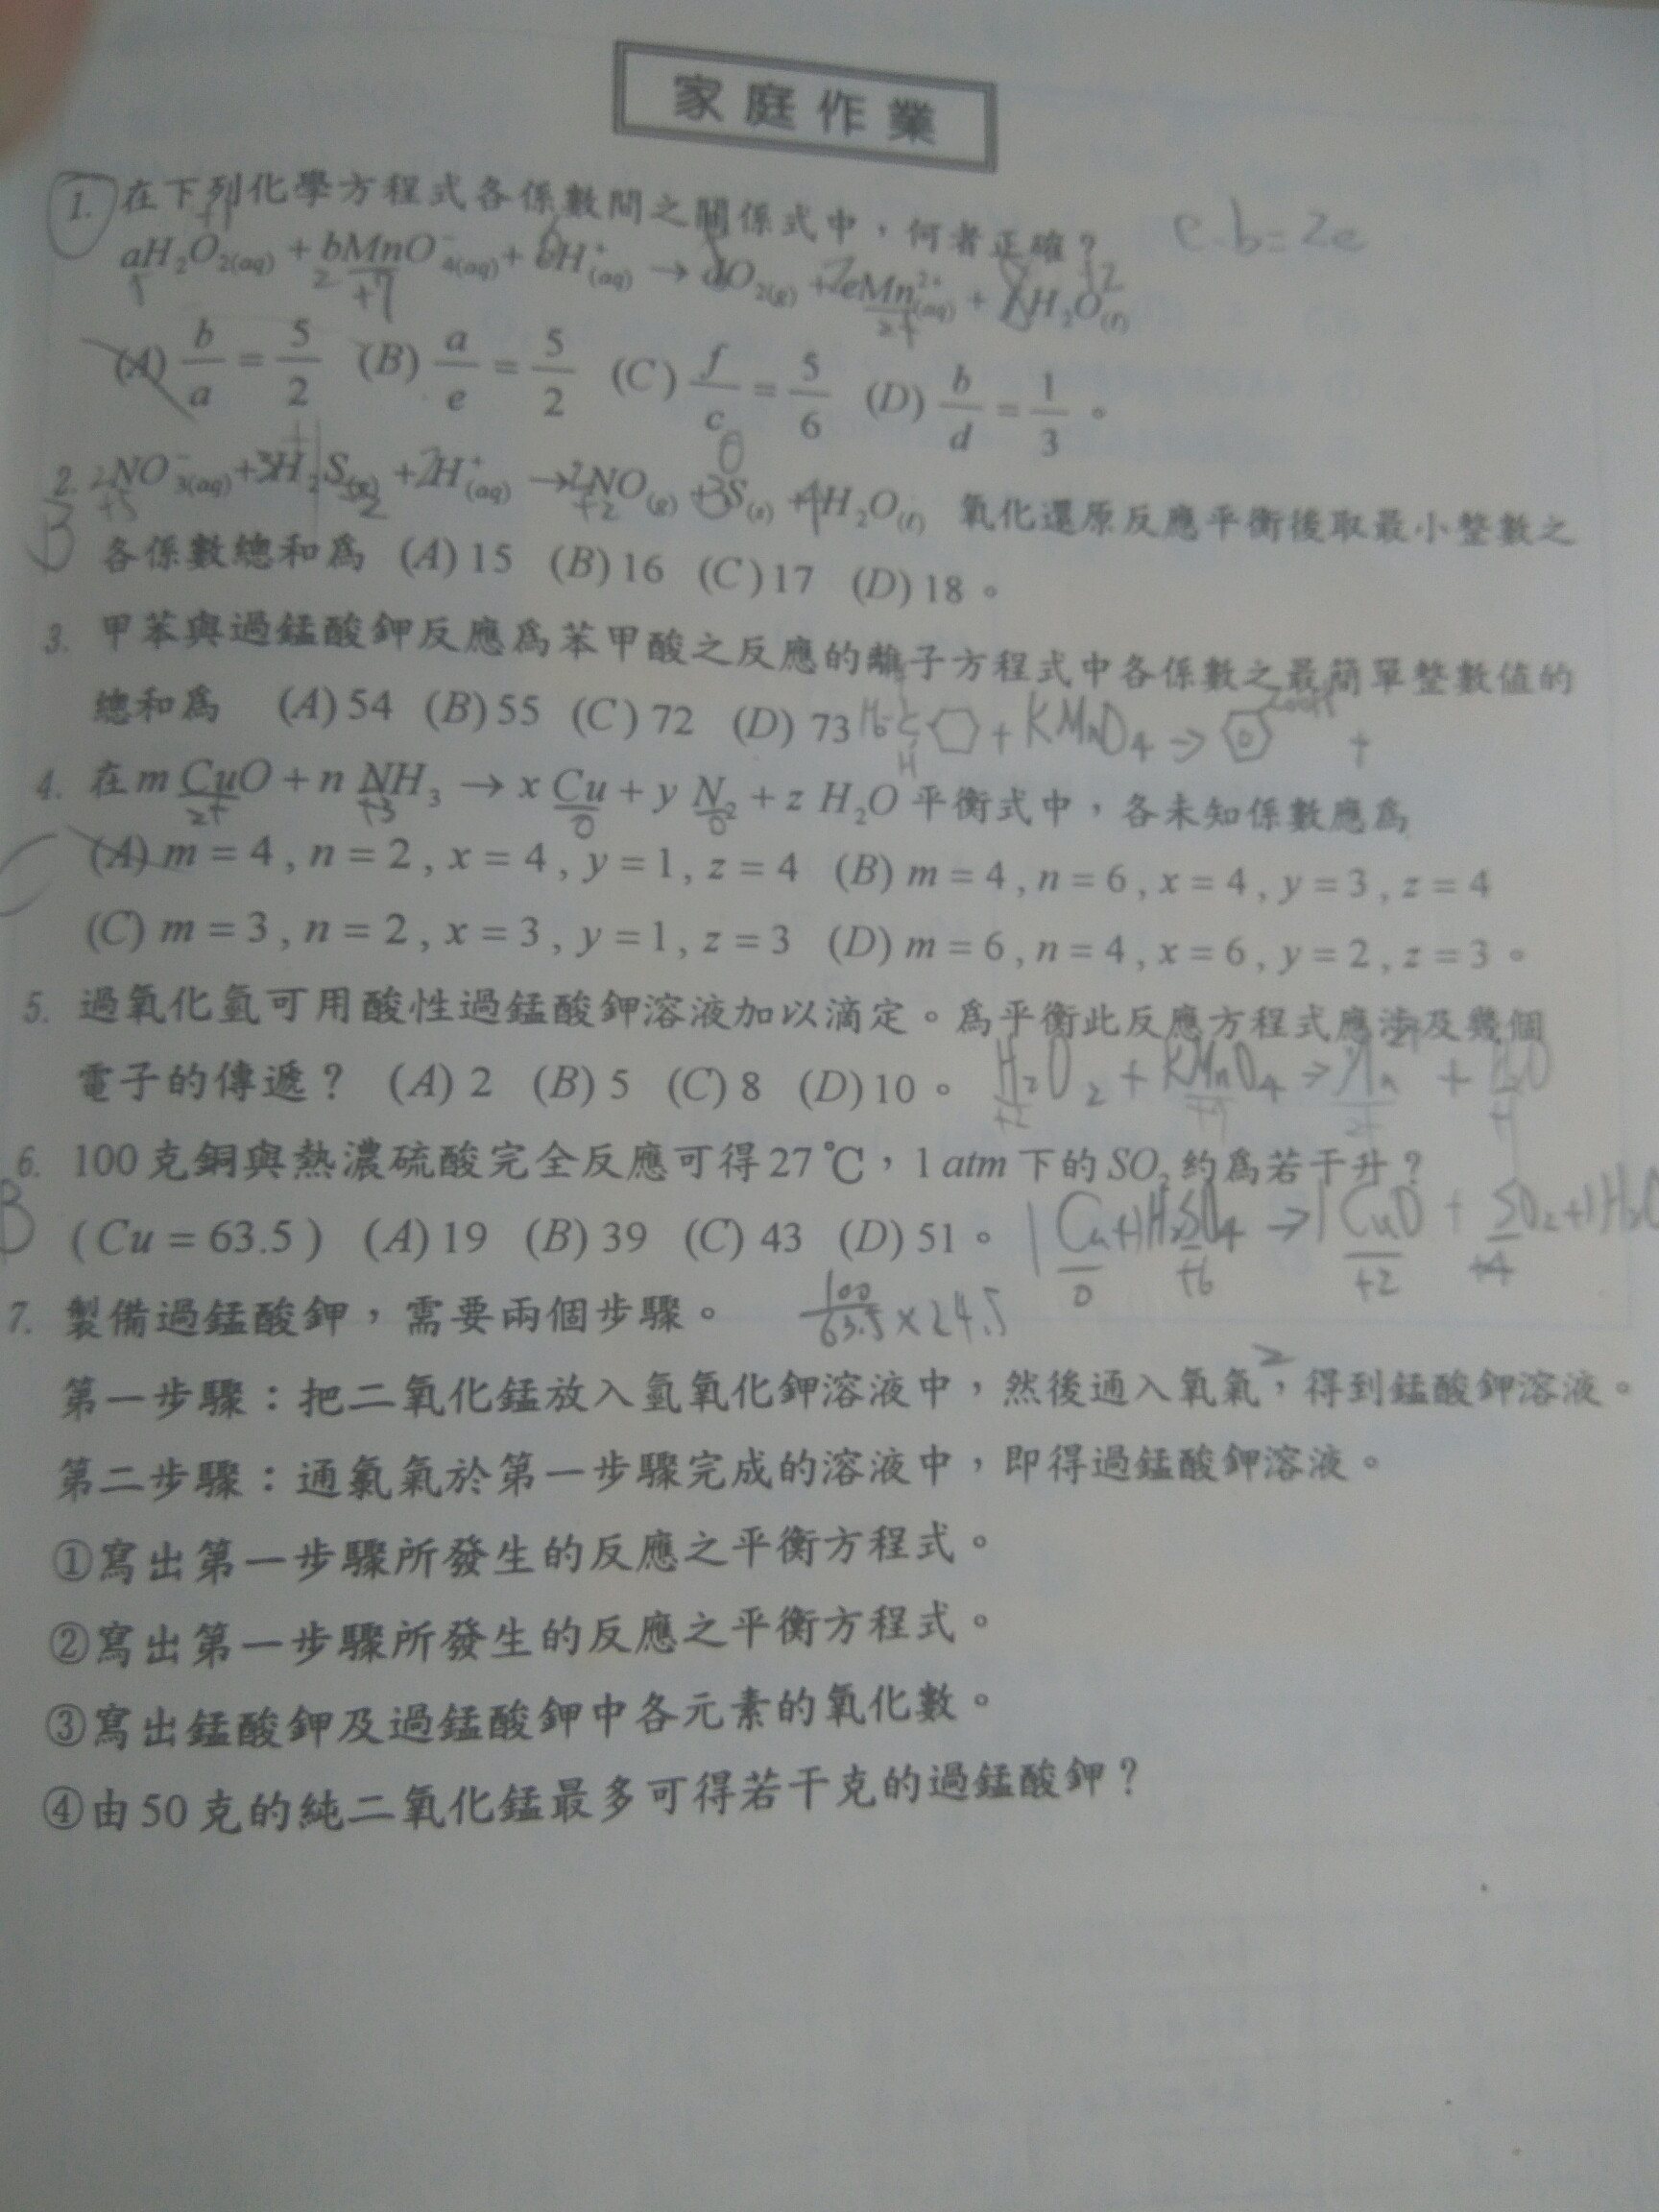 家庭作業
1. 在下列化學方程式各係數間之關係式中，何者正確？ e-b=2e
aH₂O₂(aq) + bMnO₄⁻(aq) + cH⁺(aq) → dO₂(g) + eMn²⁺(aq) + fH₂O(l)
(A) b/a = 5/2 (B) a/e = 5/2 (C) f/c = 5/6 (D) b/d = 1/3 。
2. 2NO₃⁻(aq) + 3H₂S(g) + 2H⁺(aq) → 2NO(g) + 3S(s) + 4H₂O(l) 氧化還原反應平衡後取最小整數之
B 各係數總和為 (A) 15 (B) 16 (C) 17 (D) 18 。
3. 甲苯與過錳酸鉀反應為苯甲酸之反應的離子方程式中各係數之最簡單整數值的
總和為 (A) 54 (B) 55 (C) 72 (D) 73 + KMnO₄ → +
4. 在 m CuO + n NH₃ → x Cu + y N₂ + z H₂O 平衡式中，各未知係數應為
2+ +3 0 0
C (A) m = 4 , n = 2 , x = 4 , y = 1 , z = 4 (B) m = 4 , n = 6 , x = 4 , y = 3 , z = 4
(C) m = 3 , n = 2 , x = 3 , y = 1 , z = 3 (D) m = 6 , n = 4 , x = 6 , y = 2 , z = 3 。
5. 過氧化氫可用酸性過錳酸鉀溶液加以滴定。為平衡此反應方程式應涉及幾個
電子的傳遞？ (A) 2 (B) 5 (C) 8 (D) 10 。 H₂O₂ + KMnO₄ → Mn + H₂O
6. 100克銅與熱濃硫酸完全反應可得27℃，1 atm 下的 SO₂ 約為若干升？
B ( Cu = 63.5 ) (A) 19 (B) 39 (C) 43 (D) 51 。 1Cu+1H₂SO₄ → 1CuO + SO₂+1H₂O
0 +6 +2 +4
7. 製備過錳酸鉀，需要兩個步驟。 100/63.5 × 24.5
第一步驟：把二氧化錳放入氫氧化鉀溶液中，然後通入氧氣，得到錳酸鉀溶液。
第二步驟：通氯氣於第一步驟完成的溶液中，即得過錳酸鉀溶液。
①寫出第一步驟所發生的反應之平衡方程式。
②寫出第一步驟所發生的反應之平衡方程式。
③寫出錳酸鉀及過錳酸鉀中各元素的氧化數。
④由50克的純二氧化錳最多可得若干克的過錳酸鉀？